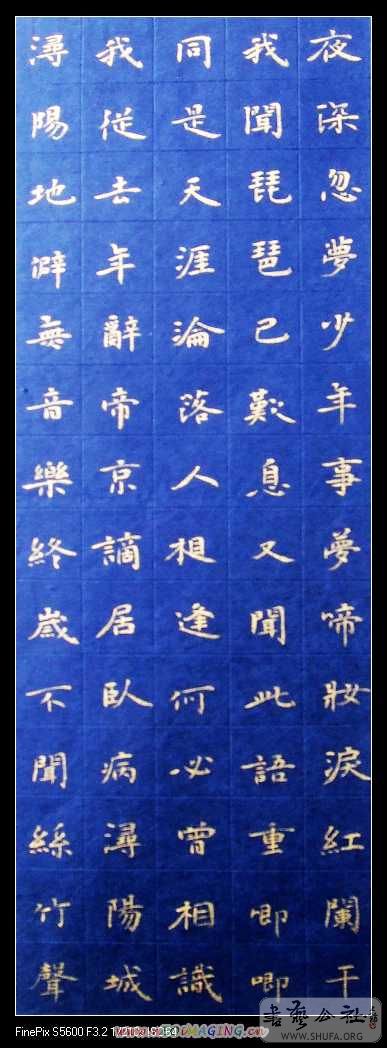 夜深忽夢少年事夢啼妝淚紅闌干
我聞琵琶已歎息又聞此語重唧唧
同是天涯淪落人相逢何必曾相識
我從去年辭帝京謫居臥病潯陽城
潯陽地僻無音樂終歲不聞絲竹聲
書藝公社
WWW.SHUFA.ORG
FinePix S5600 F3.2